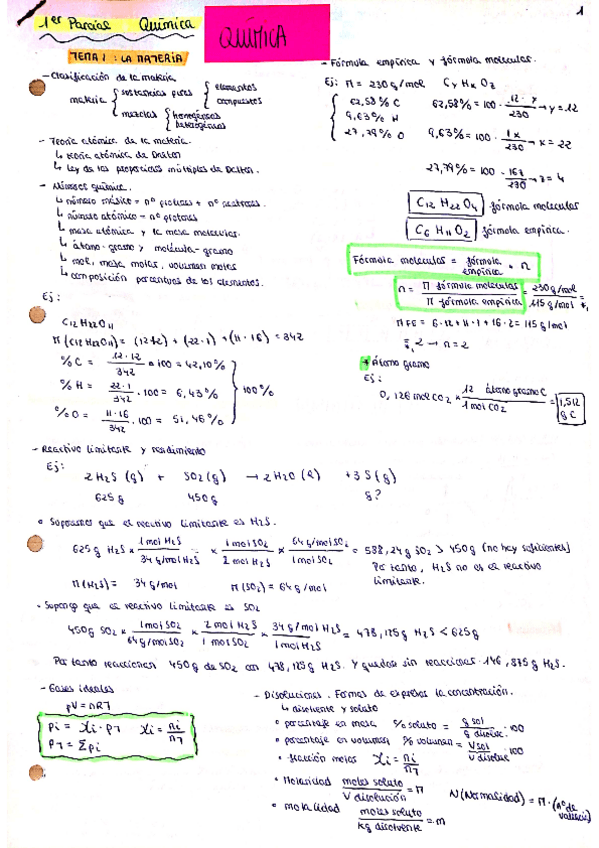 1
1er Parcial Química
QUÍMICA
TEMA 1: LA MATERIA
- Clasificación de la materia
materia { sustancias puras { elementos
compuestos
mezclas { homogéneas
heterogéneas
- Teoría atómica de la materia.
↳ teoría atómica de Dalton
↳ Ley de las proporciones múltiples de Dalton.
↳ número másico = nº protones + nº neutrones.
↳ número atómico = nº protones
↳ masa atómica y la masa molecular.
↳ átomo-gramo y molécula-gramo
↳ mol, masa molar, volumen molar
↳ composición porcentual de los elementos.
Ej:
C12H22O11
M (C12H22O11) = (12·12) + (22·1) + (11·16) = 342
% C = 12·12/342 · 100 = 42,10%
% H = 22·1/342 · 100 = 6,43%
% O = 11·16/342 · 100 = 51,46%
} 100%
- Fórmula empírica y fórmula molecular.
Ej: M = 230 g/mol CyHxOz
{ 62,58% C 62,58% = 100 · 12·y/230 → y = 12
9,63% H 9,63% = 100 · 1x/230 → x = 22
27,79% O 27,79% = 100 · 16z/230 → z = 4
C12H22O4 fórmula molecular
C6H11O2 fórmula empírica.
Fórmula molecular = fórmula empírica · n
n = M fórmula molecular / M fórmula empírica = 230 g/mol / 115 g/mol =
M FE = 6·12 + 11·1 + 16·2 = 115 g/mol
2 → n = 2
* Átomo gramo
Ej:
0,126 mol CO2 × 12 átomo gramo C / 1 mol CO2 = 1,512 g C
- Reactivo limitante y rendimiento
Ej:
2H2S (g) + SO2 (g) → 2H2O (l) + 3S (g)
625 g 450 g g?
• Suponemos que el reactivo limitante es H2S.
625 g H2S × 1 mol H2S / 34 g/mol H2S = × 1 mol SO2 / 2 mol H2S × 64 g/mol SO2 / 1 mol SO2 = 588,24 g SO2 > 450 g (no hay suficientes)
Por tanto, H2S no es el reactivo
limitante.
M(H2S) = 34 g/mol M(SO2) = 64 g/mol
· Supongo que es reactivo limitante es SO2
450 g SO2 × 1 mol SO2 / 64 g/mol SO2 × 2 mol H2S / 1 mol SO2 × 34 g/mol H2S / 1 mol H2S = 478,125 g H2S < 625 g
Por tanto reaccionan 450 g de SO2 con 478,125 g H2S. Y quedar sin reaccionar 146,875 g H2S.
- Gases ideales
pV = nRT
Pi = Xi · PT Xi = ni/nT
PT = Σpi
- Disoluciones. Formas de expresar la concentración.
↳ disolvente y soluto
• porcentaje en masa % soluto = g sol / g disoluc · 100
• porcentaje en volumen % volumen = V sol / V disoluc · 100
• fracción molar Xi = ni/nT
• Molaridad moles soluto / V disolución = M N (Normalidad) = M · (nº de valencia)
• molalidad moles soluto / kg disolvente = m